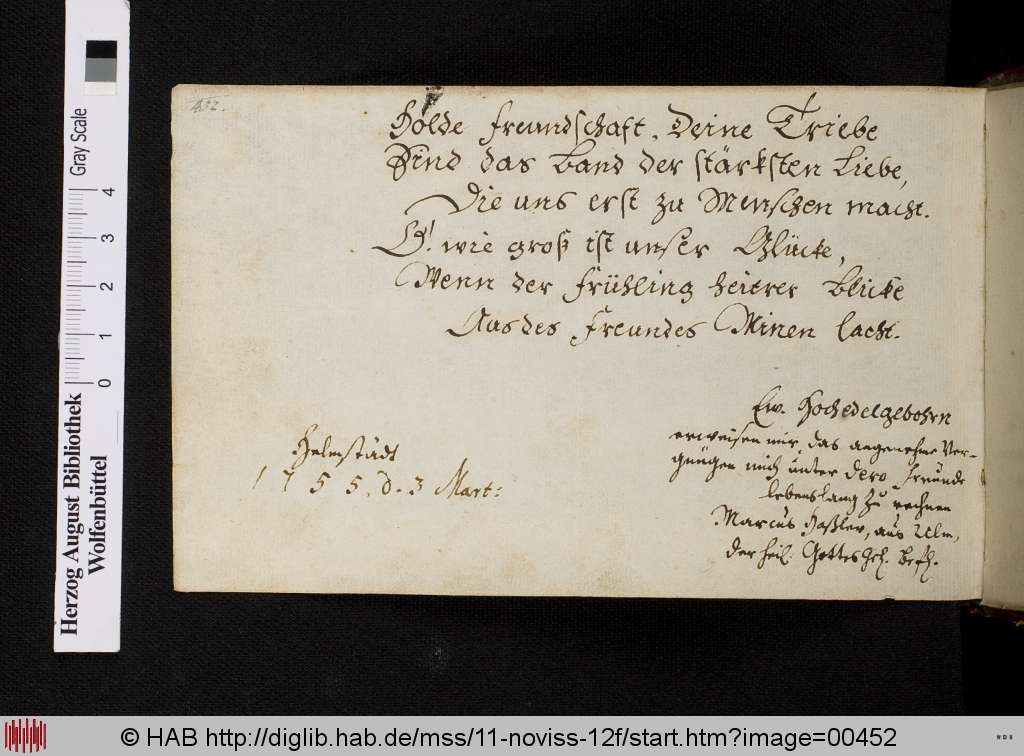 452.
Holde Freundschaft, Deine Triebe
Sind das Band der stärksten Liebe,
Die uns erst zu Menschen macht.
O! wie groß ist unser Glücke,
Wenn der Frühling heitrer Blicke
Aus des Freundes Minen lacht.
Ew. Hochedelgebohrn
erweisen mir das angenehme Ver-
gnügen mich unter dero Freunde
lebenslang zu rechnen
Marcus Haßler, aus Ulm,
der heil. Gottesgel. Befl.
Helmstädt
1755. d. 3 Mart:
Herzog August Bibliothek
Wolfenbüttel
Gray Scale
0 1 2 3 4
© HAB http://diglib.hab.de/mss/11-noviss-12f/start.htm?image=00452
WDB